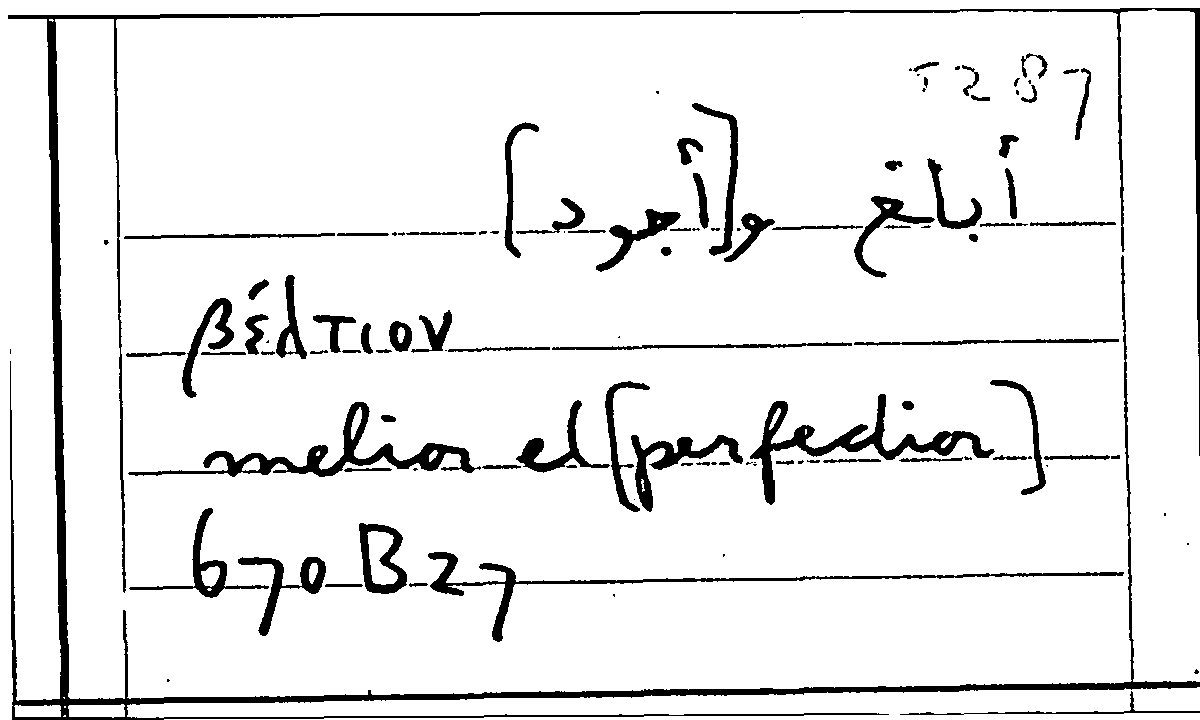 T287
أبلغ و[أجود]
βέλτιον
melior et [perfectior]
670 B 27